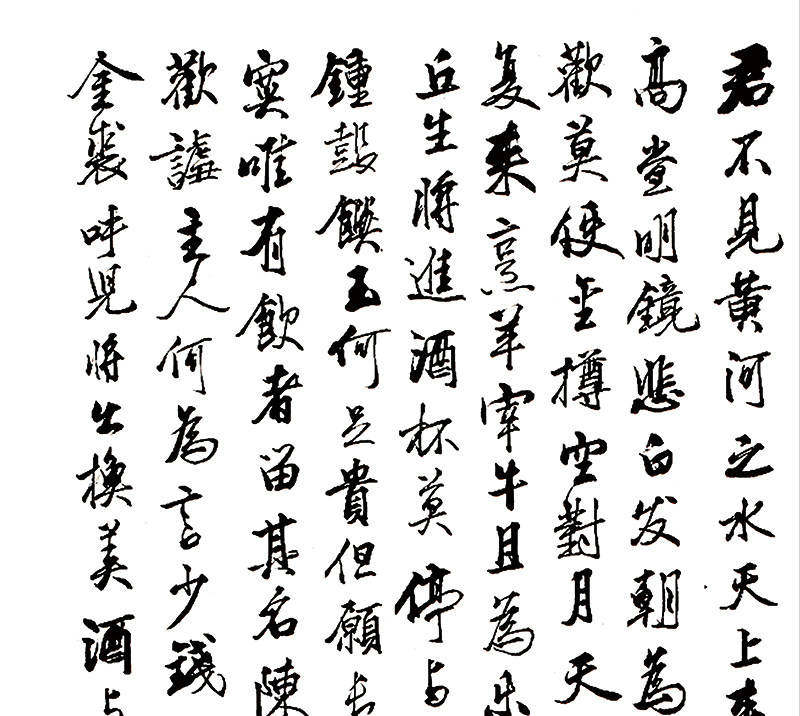 君不見黃河之水天上来
高堂明鏡悲白发朝為
歡莫使金樽空對月天
复来烹羊宰牛且為樂
丘生將進酒杯莫停与
鍾鼓饌玉何足貴但願長
寞唯有飲者留其名陳
歡謔主人何為言少錢
金裘呼児將出換美酒与